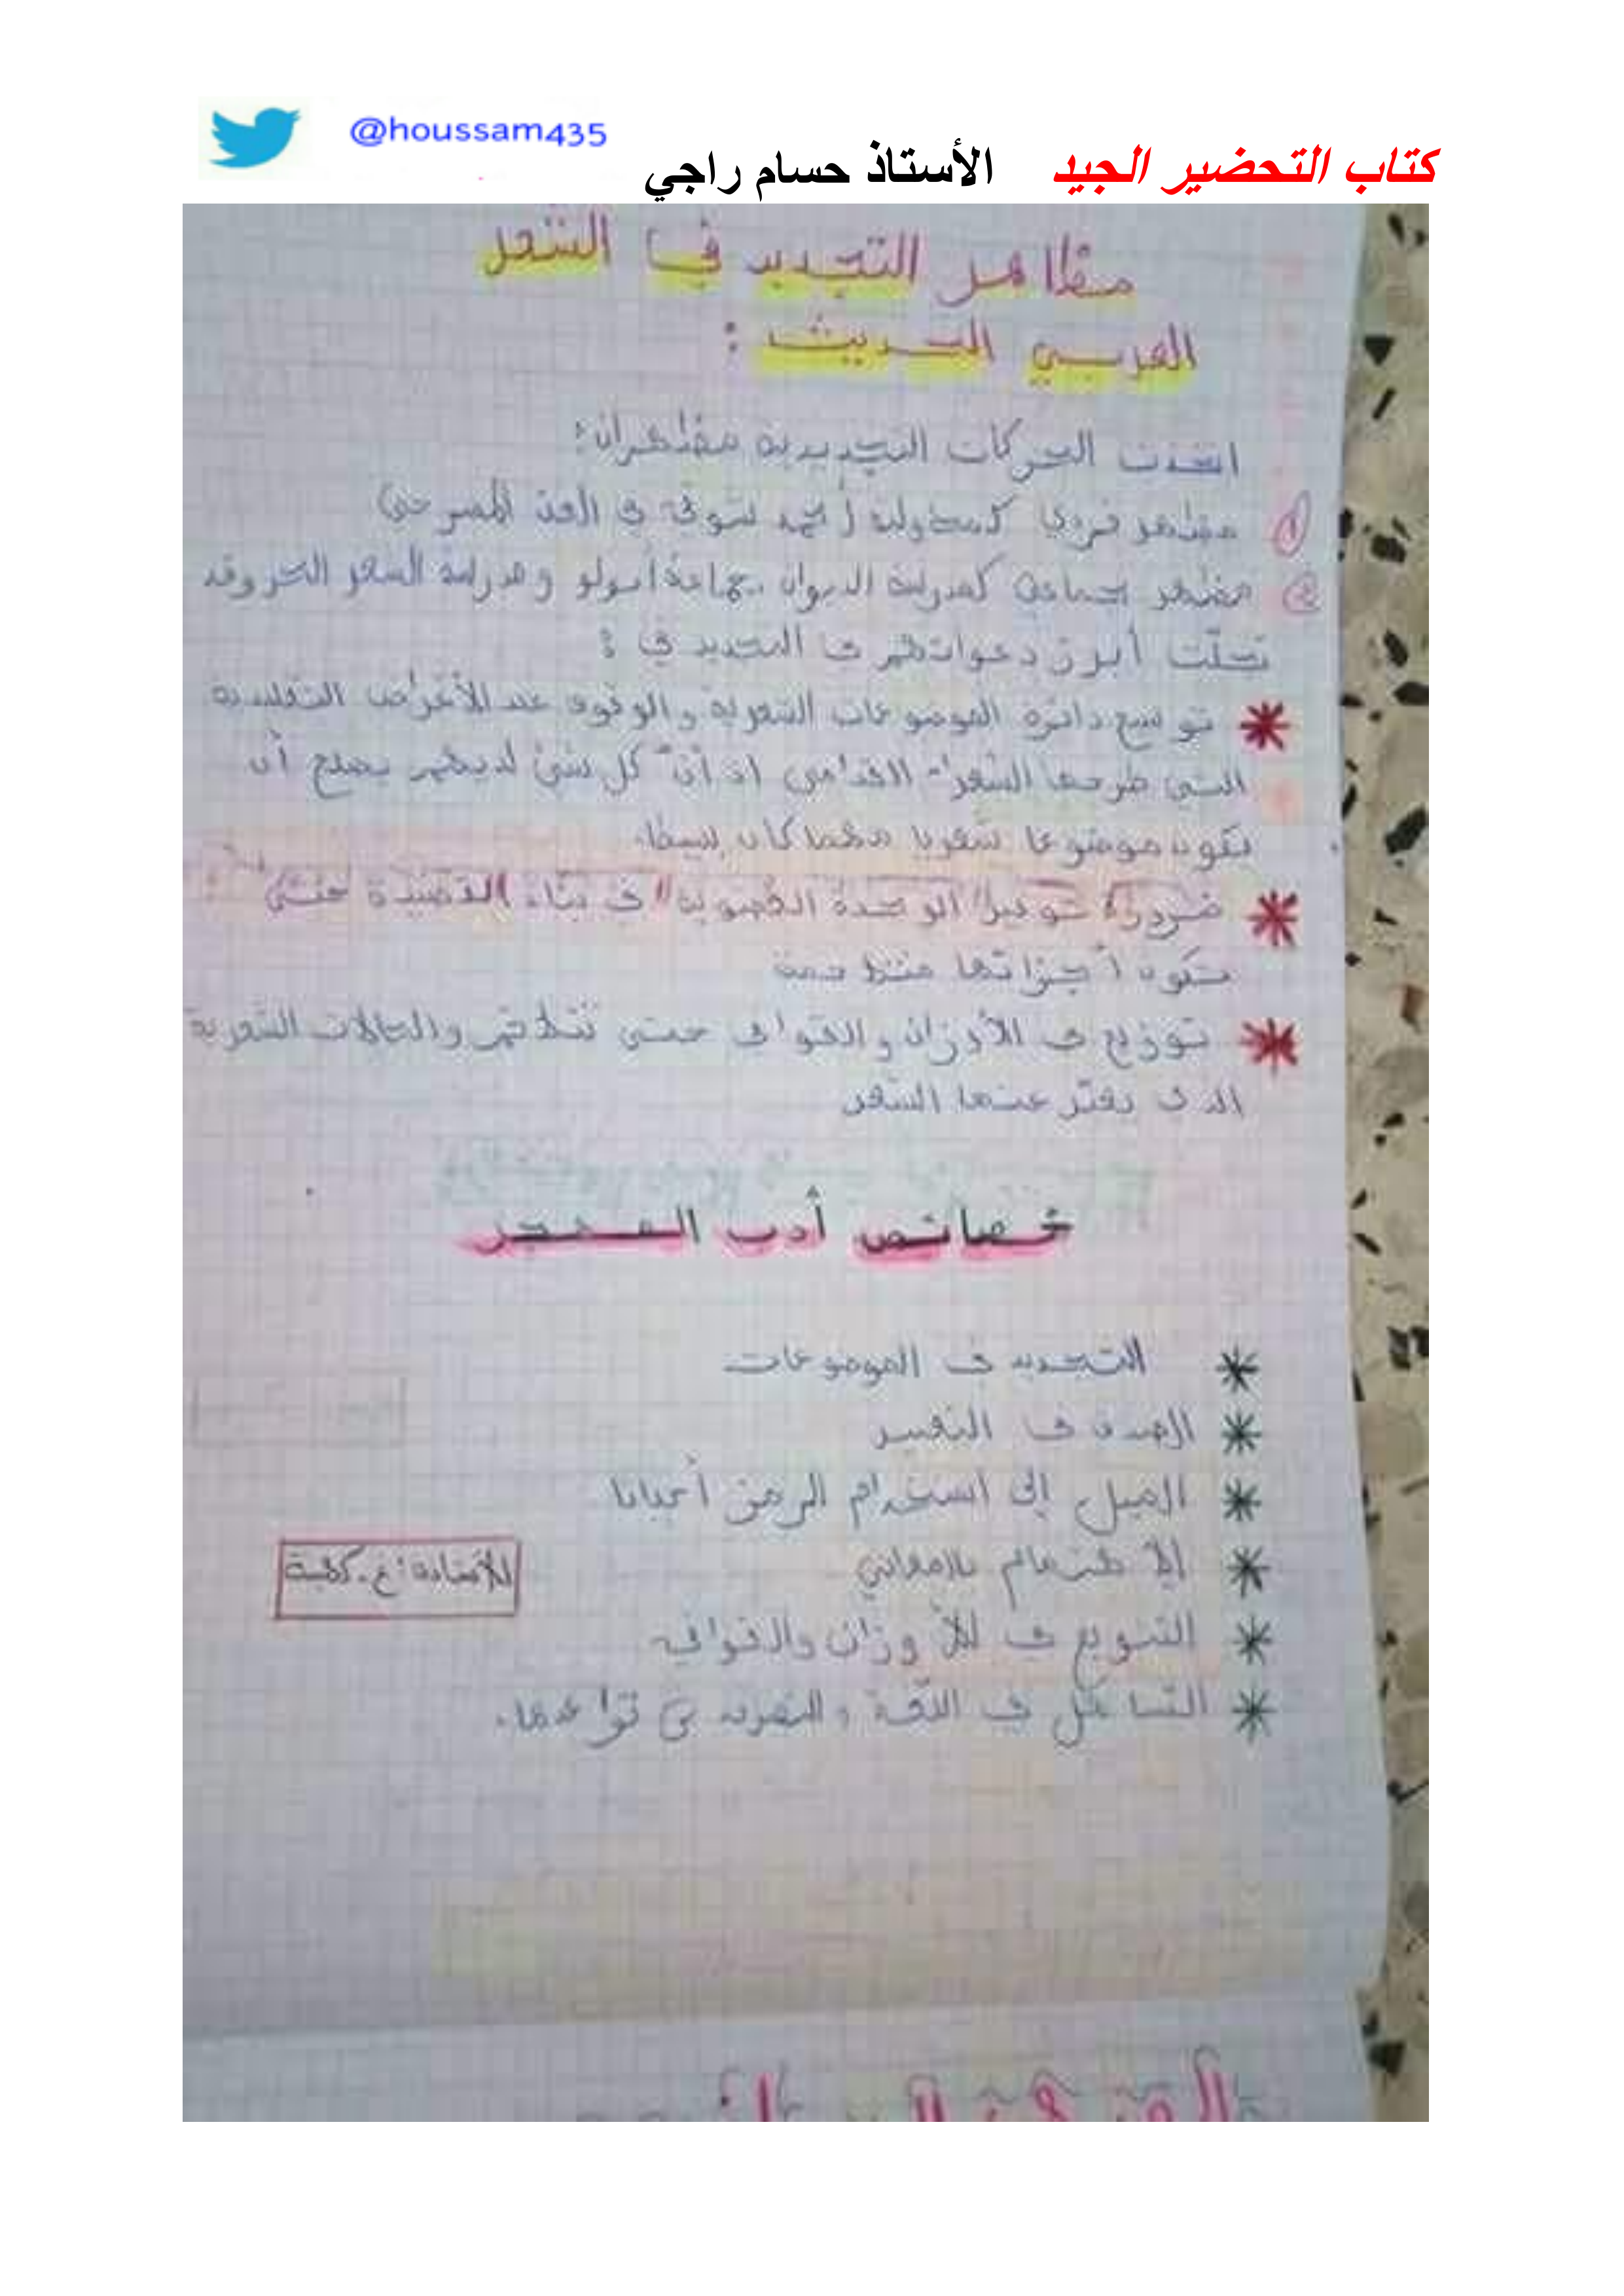 @houssam435
كتاب التحضير الجيد الأستاذ حسام راجي
مظاهر التجديد في الشعر
العربي الحديث :
اتخذت الحركات التجديدية مظهران:
1 مظهر فردي كمحاولة أحمد شوقي في الفن المسرحي
2 مظهر جماعي كمدرسة الديوان، جماعة أبولو ومدرسة الشعر الحر وقد
تجلّت أبرز دعواتهم في التجديد في :
* توسيع دائرة الموضوعات الشعرية والوقوف عند الأغراض التقليدية
التي طرحها الشعراء القدامى اذ أنّ كل شئ لديهم يصلح أن
يكون موضوعا شعريا مهما كان بسيطا.
* ضرورة توفير "الوحدة العضوية" في بناء القصيدة حتى
تكون أجزائها منتظمة
* توزيع في الأوزان والقوافي حتى تتلائم والحالات الشعرية
الذي يعبّر عنها الشعر
خصائص أدب المهجر
* التجديد في الموضوعات
* الصدق في التعبير
* الميل إلى استخدام الرمز أحيانا
* الإهتمام بالمعاني
للأستاذة: غ. كهينة
* التنويع في الأوزان والقوافي
* التساهل في اللغة و التصرف في قواعدها.